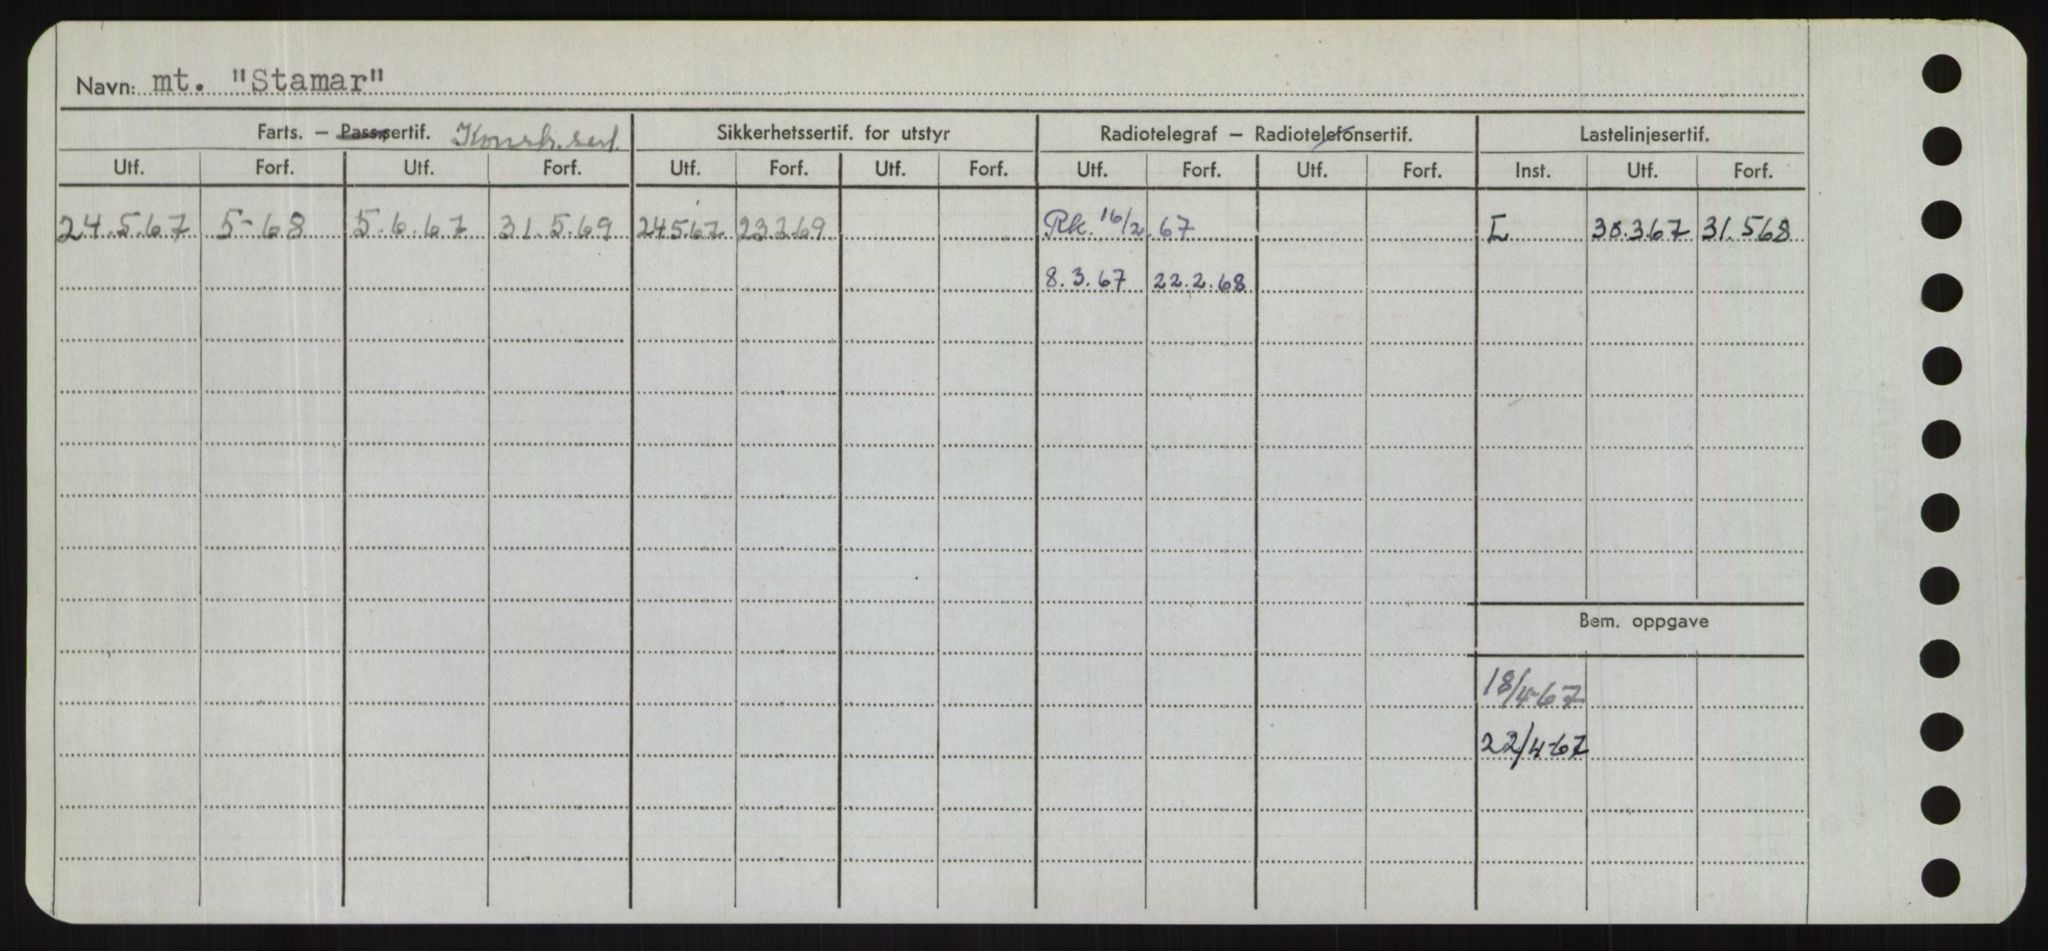 Navn: mt. "Stamar"
Farts. – Passsertif. Konstr. sert. Sikkerhetssertif. for utstyr Radiotelegraf – Radiotelefonsertif. Lastelinjesertif.
Utf. Forf. Utf. Forf. Utf. Forf. Utf. Forf. Utf. Forf. Utf. Forf. Inst. Utf. Forf.
24.5.67 5-68 5.6.67 31.5.69 24567 23269 Rk. 16/2.67 30.3.67 31.568
8.3.67 22.2.68
Bem. oppgave
18/4-67
22/4-67